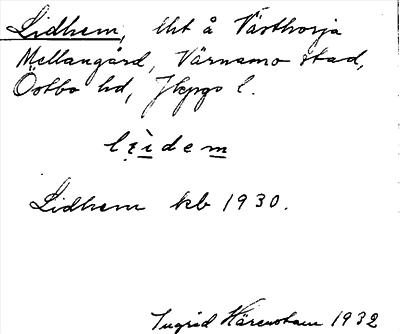 Lidhem, lht å Västhorja
Mellangård, Värnamo stad,
Östbo hd, Jkpgs l.
lìdem
Lidhem kb 1930.
Ingrid 1932